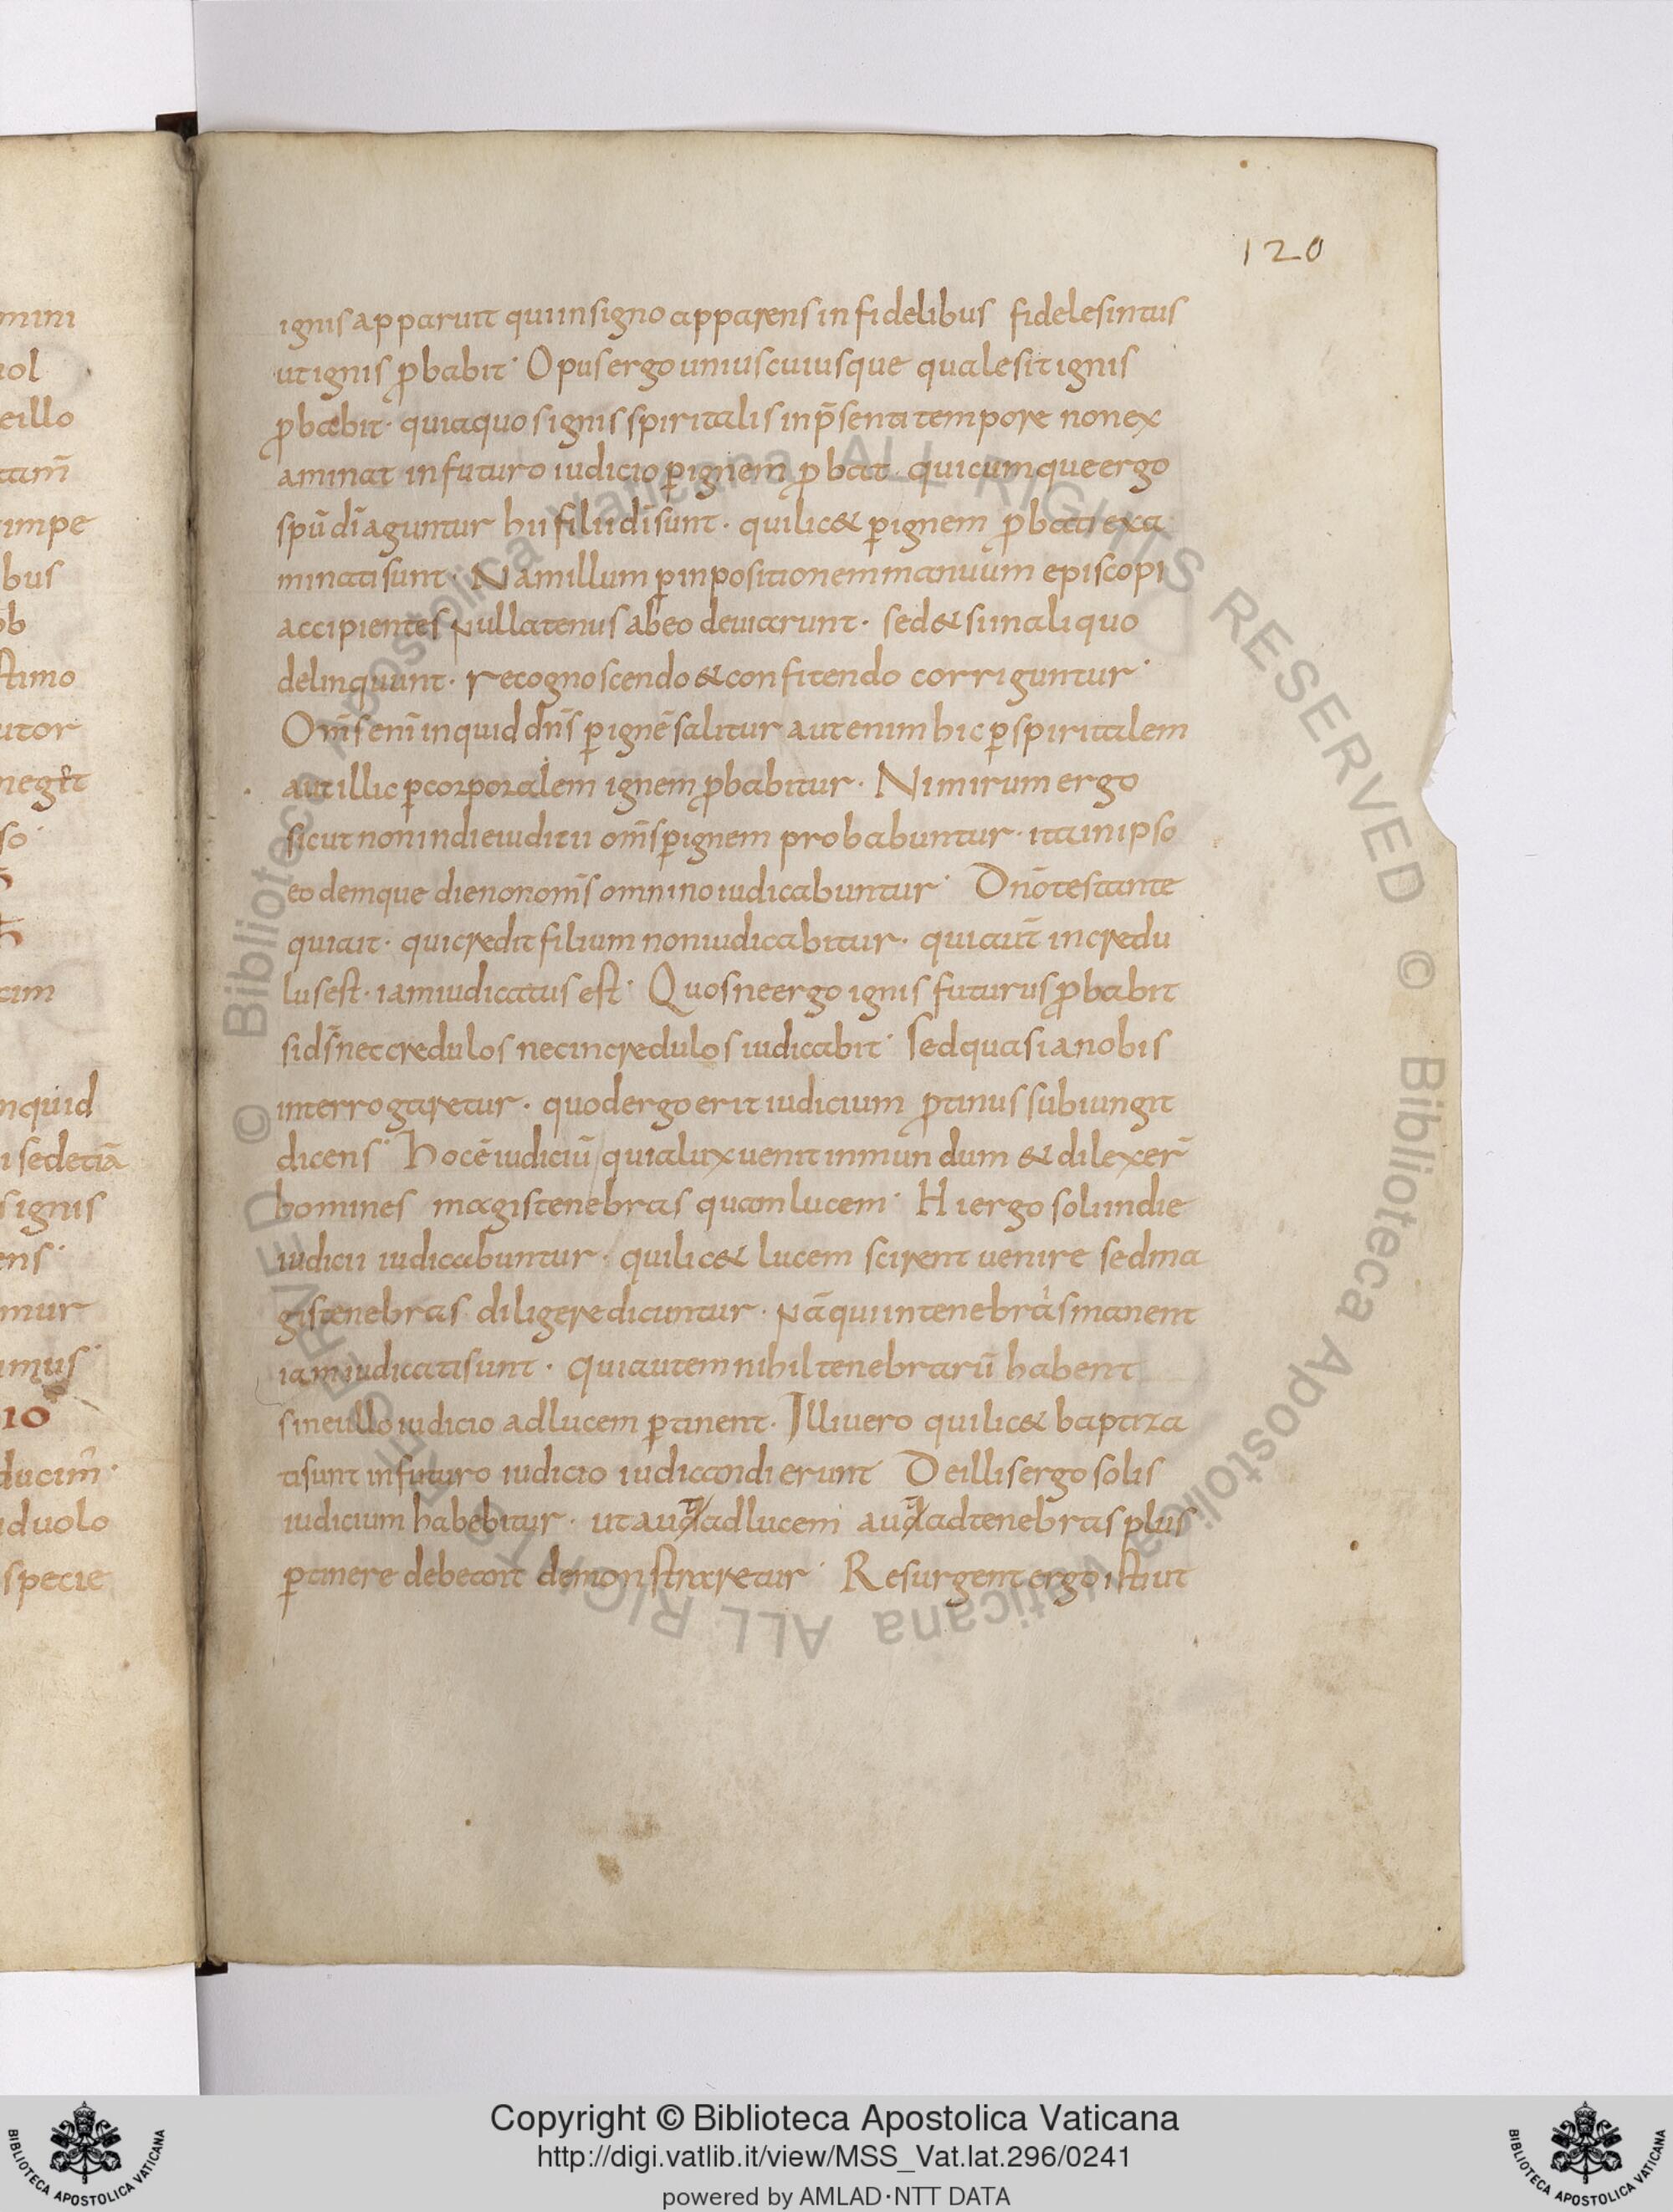 120
ignis apparuit qui in signo apparens infidelibus fideles intus
ut ignis ꝓbabit · Opus ergo uniuscuiusque quale sit ignis
ꝓbabit · quia quos ignis spiritalis in p̄senti tempore non ex
aminat in futuro iudicio ꝑ ignem ꝓbat quicumque ergo
spū dī aguntur hii filii dī sunt · qui lic& ꝑ ignem ꝓbati exa
minati sunt · Nam illum ꝑ inpositionem manuum episcopi
accipientes nullatenus ab eo deuiarunt · sed & si in aliquo
delinquunt · recognoscendo & confitendo corriguntur ·
Om̄s enī inquid dn̄s ꝑ ignē salitur aut enim hic ꝑ spiritalem
aut illic ꝑ corporalem ignem ꝓbabitur · Nimirum ergo
sicut non in die iuditii om̄s ꝑ ignem probabuntur · ita in ipso
eodemque die non om̄s omnino iudicabuntur · Dn̄o testante
qui ait · qui credit filium non iudicabitur · qui aut̄ incredu
lus est · iam iudicatus est · Quos ne ergo ignis futurus ꝓbabit
si ds̄ nec credulos nec incredulos iudicabit · Sed quasi a nobis
interrogaretur · quod ergo erit iudicium ꝓtinus subiungit
dicens · Hoc ē iudiciū quia lux uenit in mundum & dilexer̄
homines magis tenebras quam lucem · Hi ergo soli in die
iudicii iudicabuntur · qui lic& lucem scirent uenire sed ma
gis tenebras diligere dicuntur · Nā qui in tenebris manent
iam iudicati sunt · qui autem nihil tenebrarū habent
sine ullo iudicio ad lucem ꝑtinent · Illi uero qui lic& baptiza
ti sunt in futuro iudicio iudicandi erunt De illis ergo solis
iudicium habebitur · ut aut ad lucem aut ad tenebras plus
ꝑtinere debeant demonstraretur · Resurgent ergo isti ut
mini
uol
eillo
impe
bus
ob
stimo
utor
so·
cim
nquid
i sed etiā
s ignis
ens·
mur
imus·
10
ducim̄·
id uolo
specie
© Biblioteca Apostolica Vaticana ALL RIGHTS RESERVED © Biblioteca Apostolica Vaticana ALL RIGHTS RESERVED
Copyright © Biblioteca Apostolica Vaticana
http://digi.vatlib.it/view/MSS_Vat.lat.296/0241
powered by AMLAD·NTT DATA
BIBLIOTECA APOSTOLICA VATICANA
BIBLIOTECA APOSTOLICA VATICANA